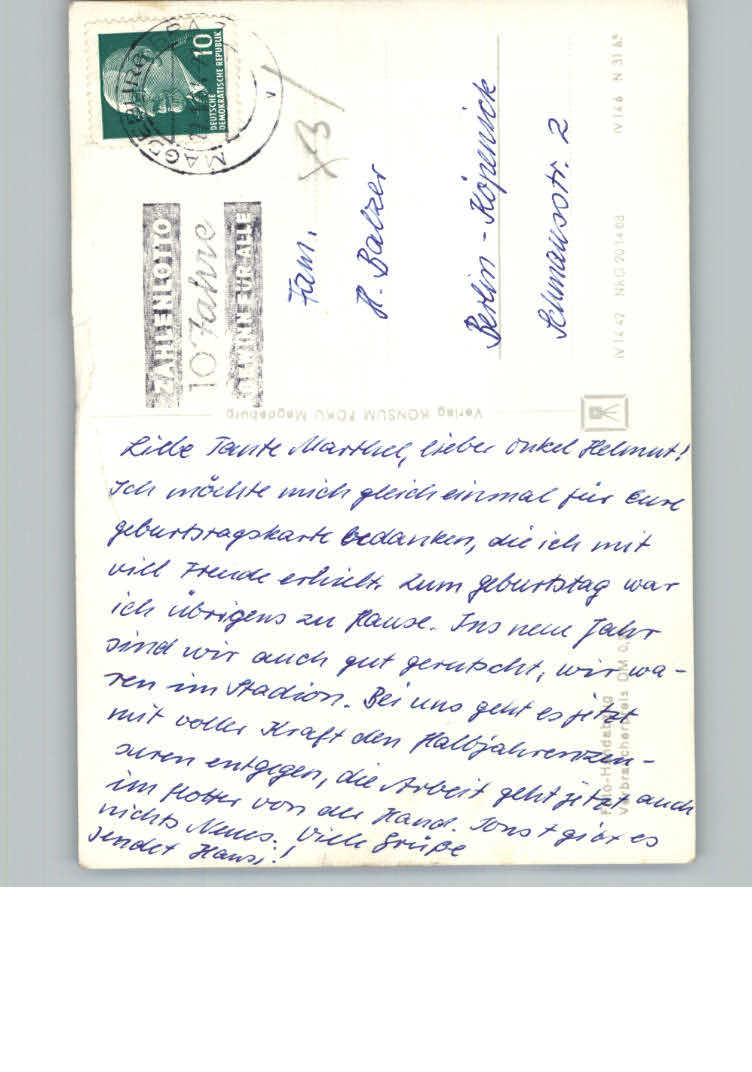 10
DEUTSCHE
DEMOKRATISCHE REPUBLIK
MAGDEBURG
ZAHLENLOTTO
10 Jahre
GEWINN FÜR ALLE
Fam.
H. Balzer
Berlin - Köpenick
Schmausstr. 2
IV 14 42 NRG 20 14 03 IV 14 6 N 31 63
Verlag KONSUM FOKU Magdeburg
Liebe Tante Marthel, lieber Onkel Helmut!
Ich möchte mich gleich einmal für Eure
Geburtstagskarte bedanken, die ich mit
viel Freude erhielt. Zum Geburtstag war
ich übrigens zu Hause. Ins neue Jahr
sind wir auch gut gerutscht, wir wa-
ren im Stadion. Bei uns geht es jetzt
mit voller Kraft den Halbjahreszen-
suren entgegen, die Arbeit geht jetzt auch
im flotter von der Hand. Sonst gibt es
nichts Neues. Viele Grüße
sendet Hansi!
Foto-Handabzug
Verbraucherpreis DM 0,